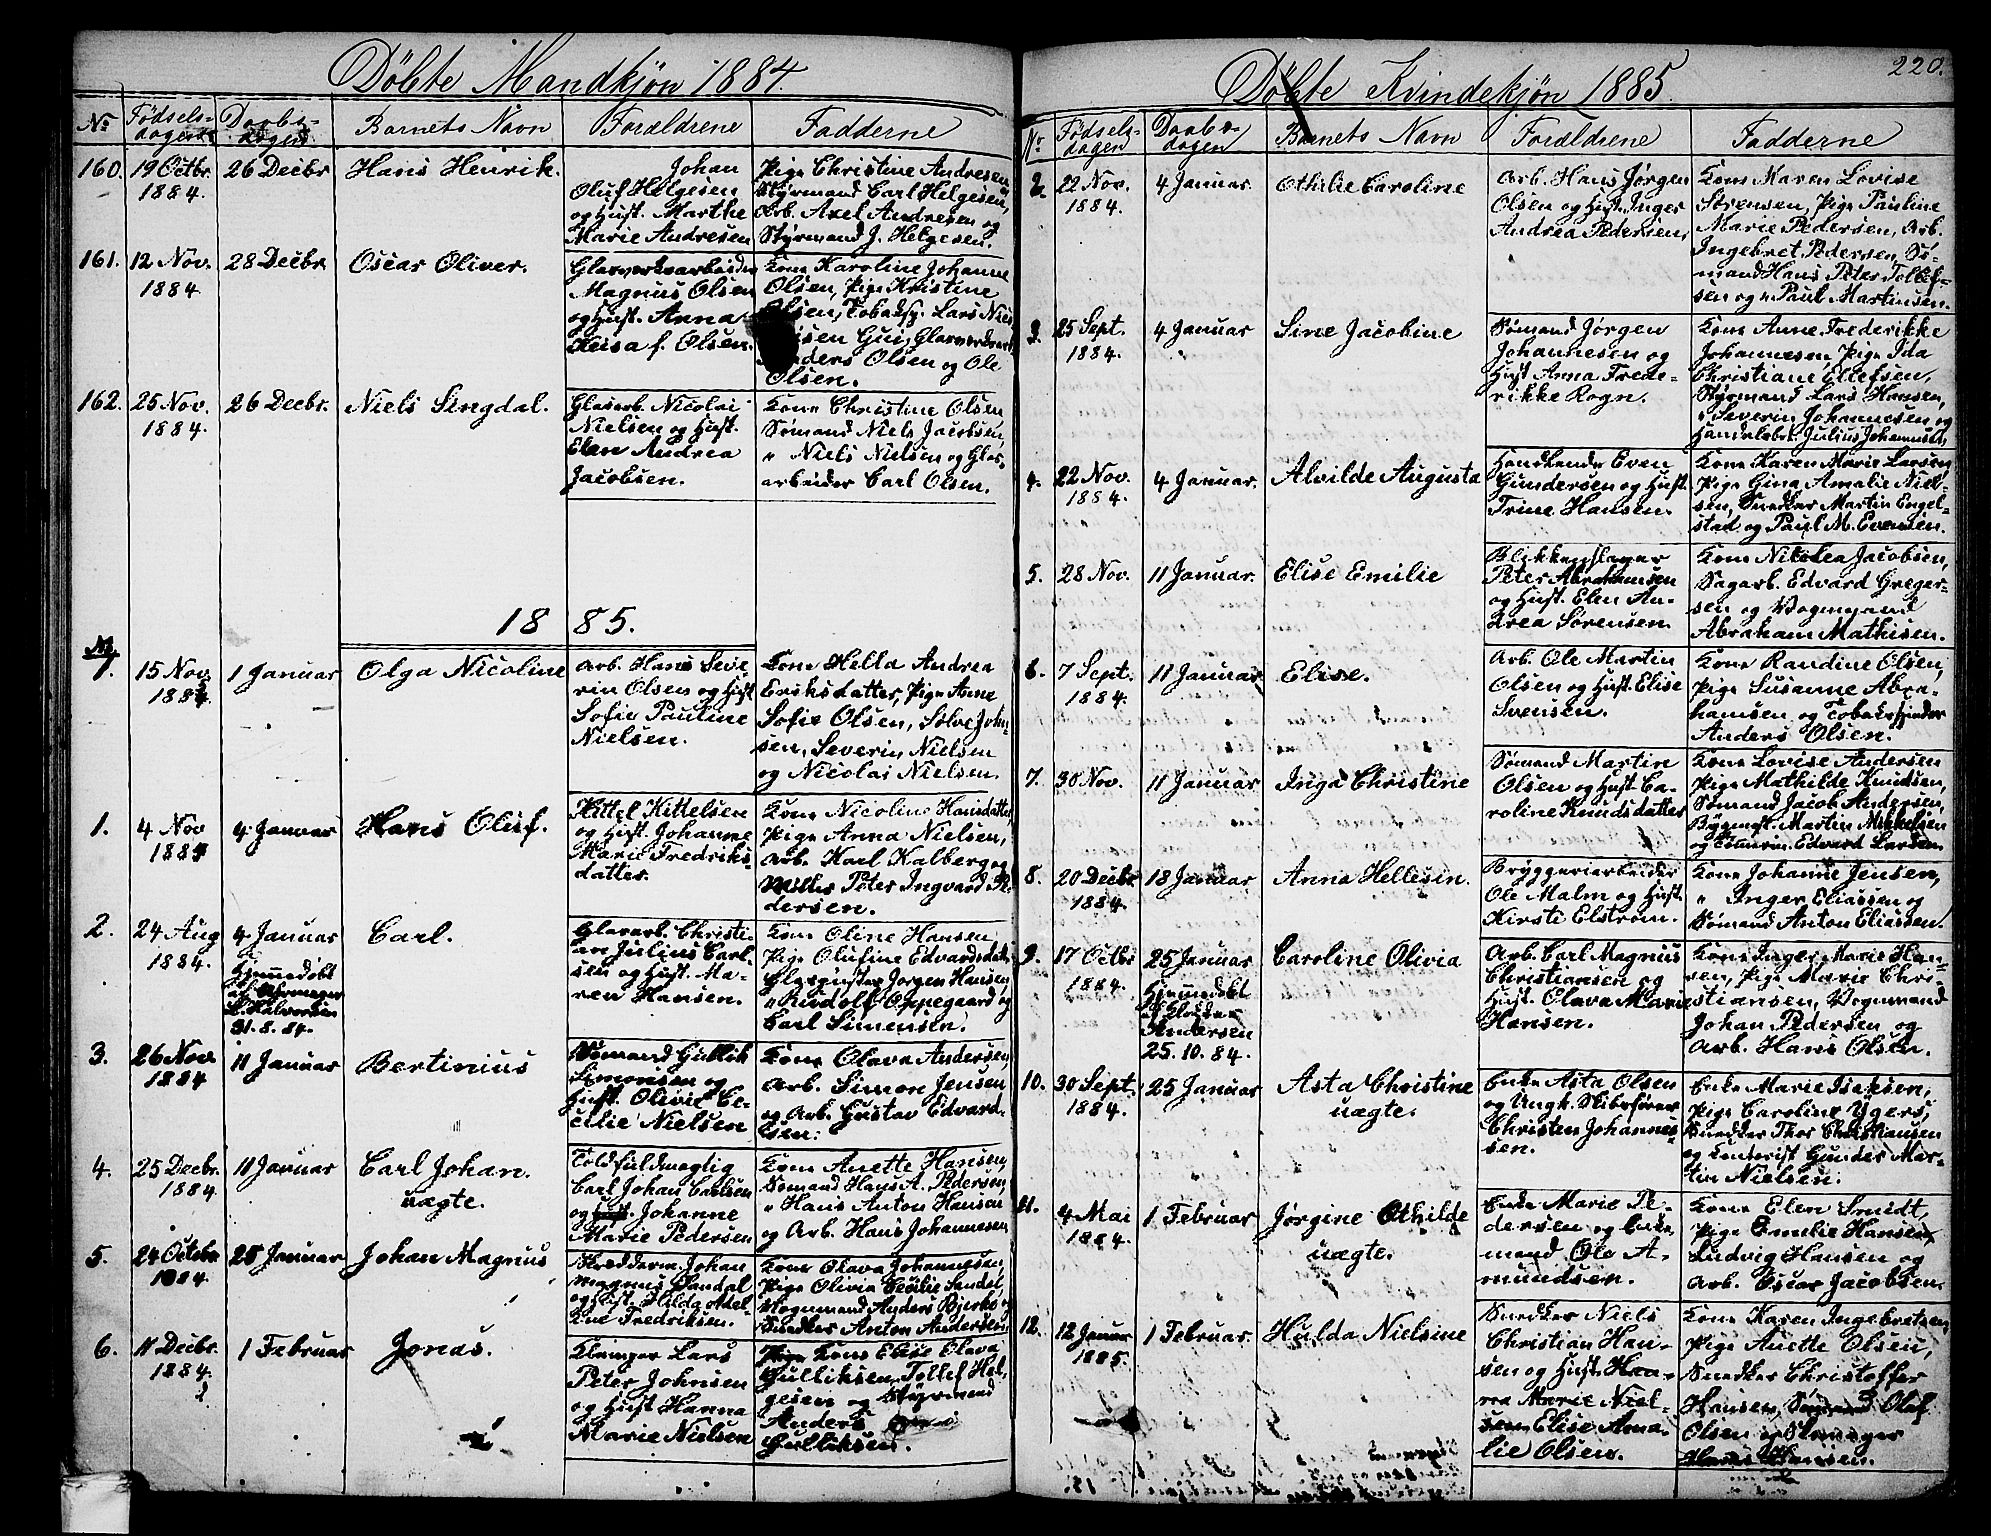 Döbte Mandkjön 1884.
No Fødsels-dagen Daabs-dagen Barnets Navn Forældrene Fadderne
160. 19 Octbr. 1884. 26 Decbr Hans Henrik. Johan
Oluf Helgesen
og Hust. Marthe
Marie Andresen
Pige Christine Andresen,
Styrmand Carl Helgesen,
Arb. Axel Andresen og
Styrmand J. Helgesen.
161. 12 Nov. 1884. 28 Decbr Oscar Oliver. Glasverksarbeider
Magnus Olsen
og Hust. Anna
Luisa f. Olsen.
Kone Karoline Johanne
Olsen, Pige Kristine
Olsen, Tobaksf. Lars
Olsen
Anders Olsen og Ole
Olsen.
162. 25 Nov. 1884. 26 Decbr. Niels Singdal. Glasarb. Nicolai
Nielsen og Hust.
Elen Andrea
Jacobsen.
Kone Christine Olsen
Sømand Niels Jacobsen,
" Niels Nielsen og Glas-
arbeider Carl Olsen.
1885.
No
1. 15 Nov. 1884 1 Januar Olga Nicoline Arb. Hans Seve-
rin Olsen og Hust
Sofie Pauline
Nielsen.
Kone Hella Andrea
Eriksdatter, Pige Anne
Sofie Olsen, Sølve John-
sen, Severin Nielsen
og Nicolai Nielsen.
1. 4 Nov 1884 4 Januar Hans Oluf. Kittel Kittelsen
og Hust. Johanne
Marie Fredriks-
datter.
Kone Nicoline Hansdatter,
Pige Anna Nielsen,
Arb. Karl Kalberg og
Møller Peter Ingvard Pe-
dersen.
2. 24 Aug 1884. 4 Januar
Hjemmedöbt
af
Halvorsen
31.8.84. Carl. Glasarb. Christi-
an Julius Carl-
sen og Hust. Ma-
ren Hansen.
Kone Oline Hansen
Pige Olufine Edvardsdatter
Glaspuster Jørgen Hansen,
" Rudolf Oppegaard og
Carl Simensen.
3. 26 Nov. 1884 11 Januar Bertinius Sømand Gullik
Simonsen og
Hust. Olivie Ce-
cilie Nielsen
Kone Olava Andersen,
Arb. Simon Jensen
og Arb. Gustav Edvard-
sen.
4. 25 Decbr. 1884. 11 Januar Carl Johan.
uægte. Toldfuldmægtig
Carl Johan Carlsen
og Johanne
Marie Pedersen
Kone Anette Hansen,
Sømand Hans A. Pedersen,
" Hans Anton Hansen
og Arb. Hans Johannesen
5. 24 Octobr 1884. 25 Januar Johan Magnus Skrædderm. Johan
Magnus Sandal
og Hust. Hilda Adel-
ine Fredriksen.
Kone Olava Johannesen,
Pige Olivia Cecilie Sandal,
Vognmand Anders Bjerke og
Snedker Anton Andersen
6. 11 Decbr. 1884 1 Februar Jonas. Lars
Peter Johnsen
og Hust Hanna
Marie Nielsen
Kone Elise Olava
Gulliksen, Tollef Hel-
gesen og Styrmand
Anders
Gulliksen.
Döbte Kvindekjön 1885.
220.
No Fødsels-dagen Daabs-dagen Barnets Navn Forældrene Fadderne
2. 22 Nov. 1884. 4 Januar. Othilie Caroline Arb. Hans Jørgen
Olsen og Hust. Inger
Andrea Pedersen,
Kone Maren Lovise
Sørensen, Pige Pauline
Marie Pedersen, Arb.
Ingebret Pedersen, Sø-
mand Hans Peter Tollef-
sen og " Paul Martinsen.
3. 25 Sept. 1884. 4 Januar Sine Jacobine Sømand Jørgen
Johannesen og
Hust Anna Frede-
rikke Rogn.
Kone Anne Frederikke
Johannesen Pige Ida
Christiane Ellefsen,
Styrmand Lars Hansen,
" Severin Johannesen og
Handelsbet. Julius Johannesen,
4. 22 Nov. 1884. 4 Januar. Alvilde Augusta Handlende Even
Gundersen og Hust.
Trine Hansen.
Kone Karen Marie Larsen
Pige Gina Amalie Niel-
sen, Snedker Martin Engel-
stad og Paul M. Evensen.
5. 28 Nov. 11 Januar. Elise Emilie Blikkenslager
Peter Abrahamsen
og Hust. Elen An-
drea Sørensen.
Kone Nikolea Jacobsen,
Sagarb. Edvard Greger-
sen og Vognmand
Abraham Mathisen.
6. 7 Sept. 1884. 11 Januar Elise. Arb. Ole Martin
Olsen og Hust. Elise
Svensen.
Kone Randine Olsen,
Pige Susanne Abra-
hamsen og Tobakspinder
Anders Olsen.
7. 30 Nov. 11 Januar Inga Christine Sømand Martin
Olsen og Hust. Ca-
roline Knudsdatter
Kone Lovise Andersen
Pige Mathilde Knudsen,
Sømand Jacob Andersen,
Bygmst. Martin Mikkelsen
og Tømrm. Edvard Larsen.
8. 20 Decbr 1884. 18 Januar Anna Hellesen. Bryggeriarbeider
Ole Malm og Hust.
Kirsti Elstrøm.
Kone Johanne Jensen,
" Inger Eliassen og
Sømand Anton Eliassen.
9. 17 Octbr 1884. 25 Januar
Hjemmedöbt
af
Andersen
25.10.84. Caroline Olivia Arb. Carl Magnus
Christiansen og
Hust. Olava Marie
Hansen.
Kone Inger Marie Han-
sen, Pige Marie Chri-
stiansen, Vognmand
Johan Pedersen og
Arb. Hans Olsen.
10. 30 Sept. 1884. 25 Januar Asta Christine
uægte. Enke Asta Olsen
og Ungk. Skibsfører
Christen Johannes-
sen.
Enke Marie Isaksen,
Pige Caroline Ygers,
Snedker Thor Christiansen
og Kontorist Gunder Mar-
tin Nielsen.
11. 4 Mai 1884. 1 Februar Jørgine Othilde
uægte. Enke Marie Pe-
dersen og Enke-
mand Ole A-
mundsen.
Kone Elen Smidt,
Pige Emelie Hansen
Ludvig Hansen og
Arb. Oscar Jacobsen.
12. 12 Januar 1885. 1 Februar. Hulda Nielsine Snedker Niels
Christian Han-
sen og Hust.
Marie Niel-
sen Elise Ama-
lie Olsen.
Kone Karen Ingebretsen,
Pige Anette Olsen,
Snedker Christoffer
Hansen, Sømand Olaf
Olsen og
Hans Hansen.